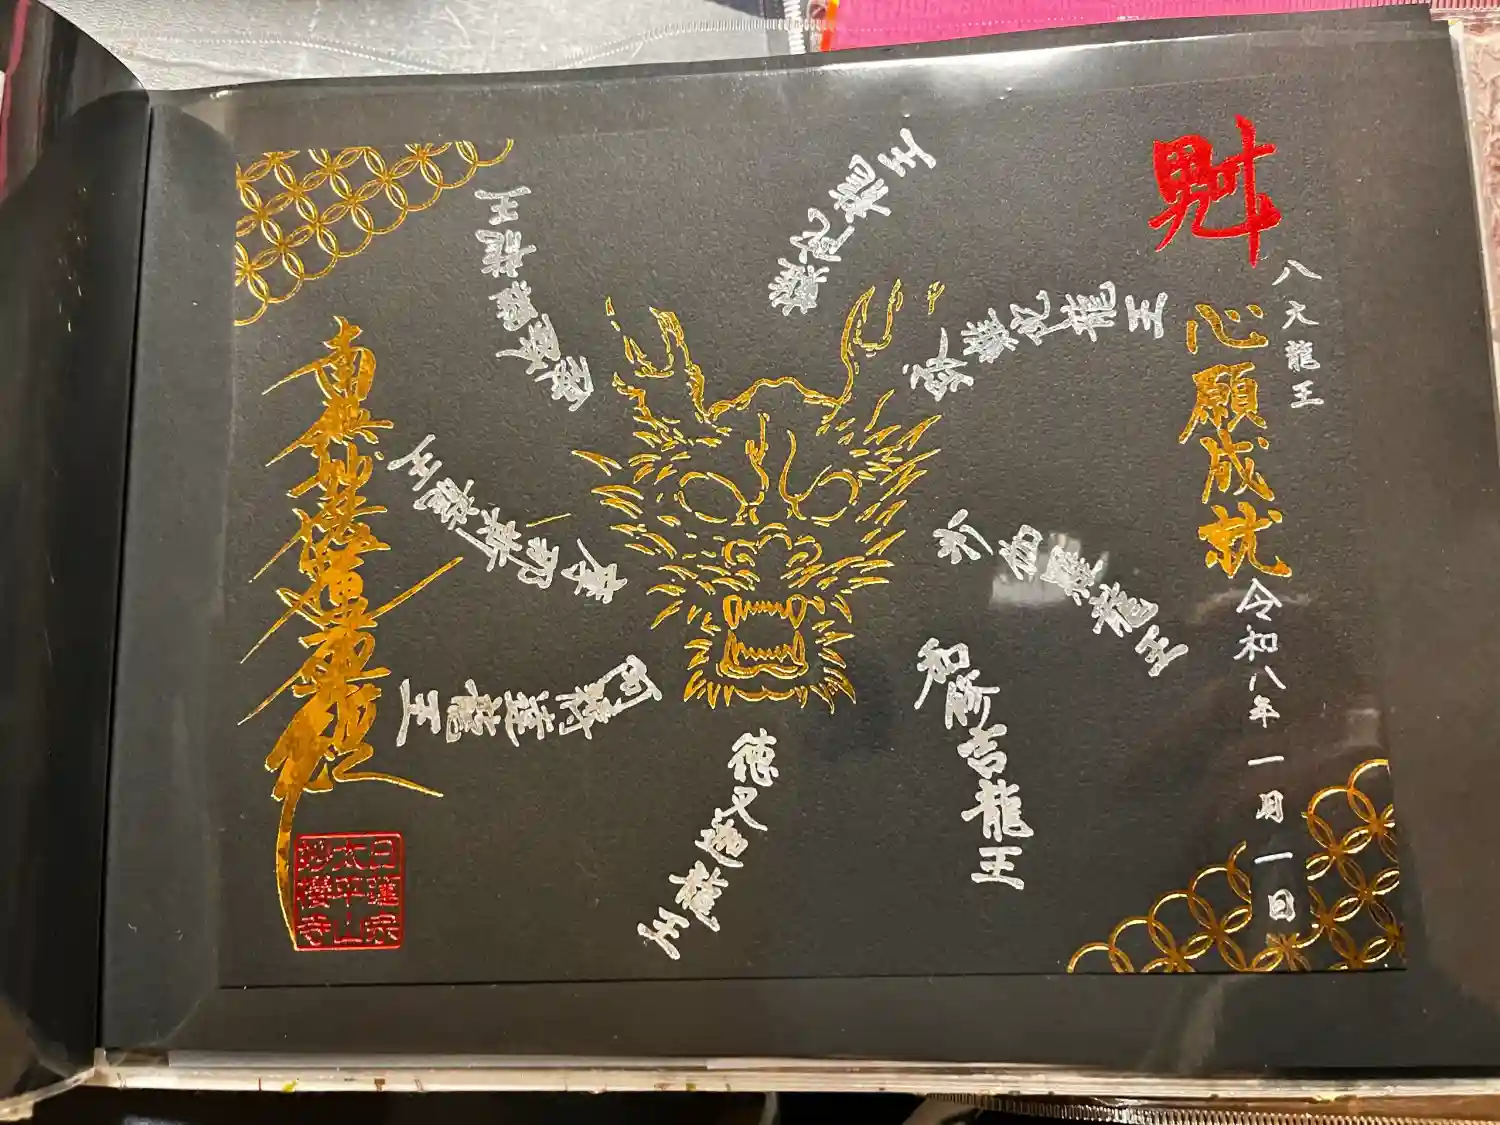 魁
八大龍王
心願成就
令和八年一月一日
難陀龍王
跋難陀龍王
沙伽羅龍王
和修吉龍王
徳叉迦龍王
阿耨達龍王
摩那斯龍王
優鉢羅龍王
南無妙法蓮華経
日蓮宗
太平山
妙櫻寺